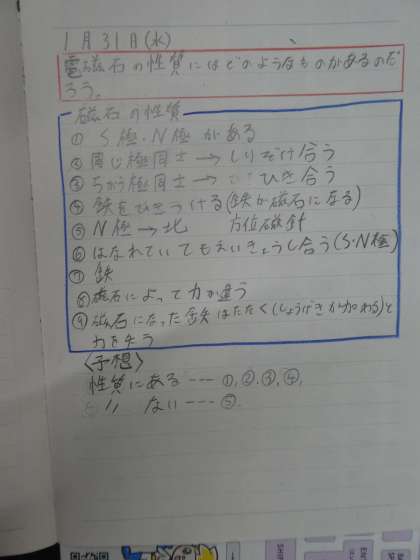 1月31日(水)
電磁石の性質にはどのようなものがあるのだ
ろう。
磁石の性質
① S極・N極がある
② 同じ極同士→しりぞけ合う
③ ちがう極同士→ひき合う
④ 鉄をひきつける(鉄が磁石になる)
⑤ N極→北 方位磁針
⑥ はなれていてもえいきょうし合う(S・N極)
⑦ 鉄
⑧ 磁石によって力が違う
⑨ 磁石になった鉄はたたく(しょうげきが加わる)と
力を失う
〈予想〉
性質にある---①,②,③,④,
〃 ない---⑤.